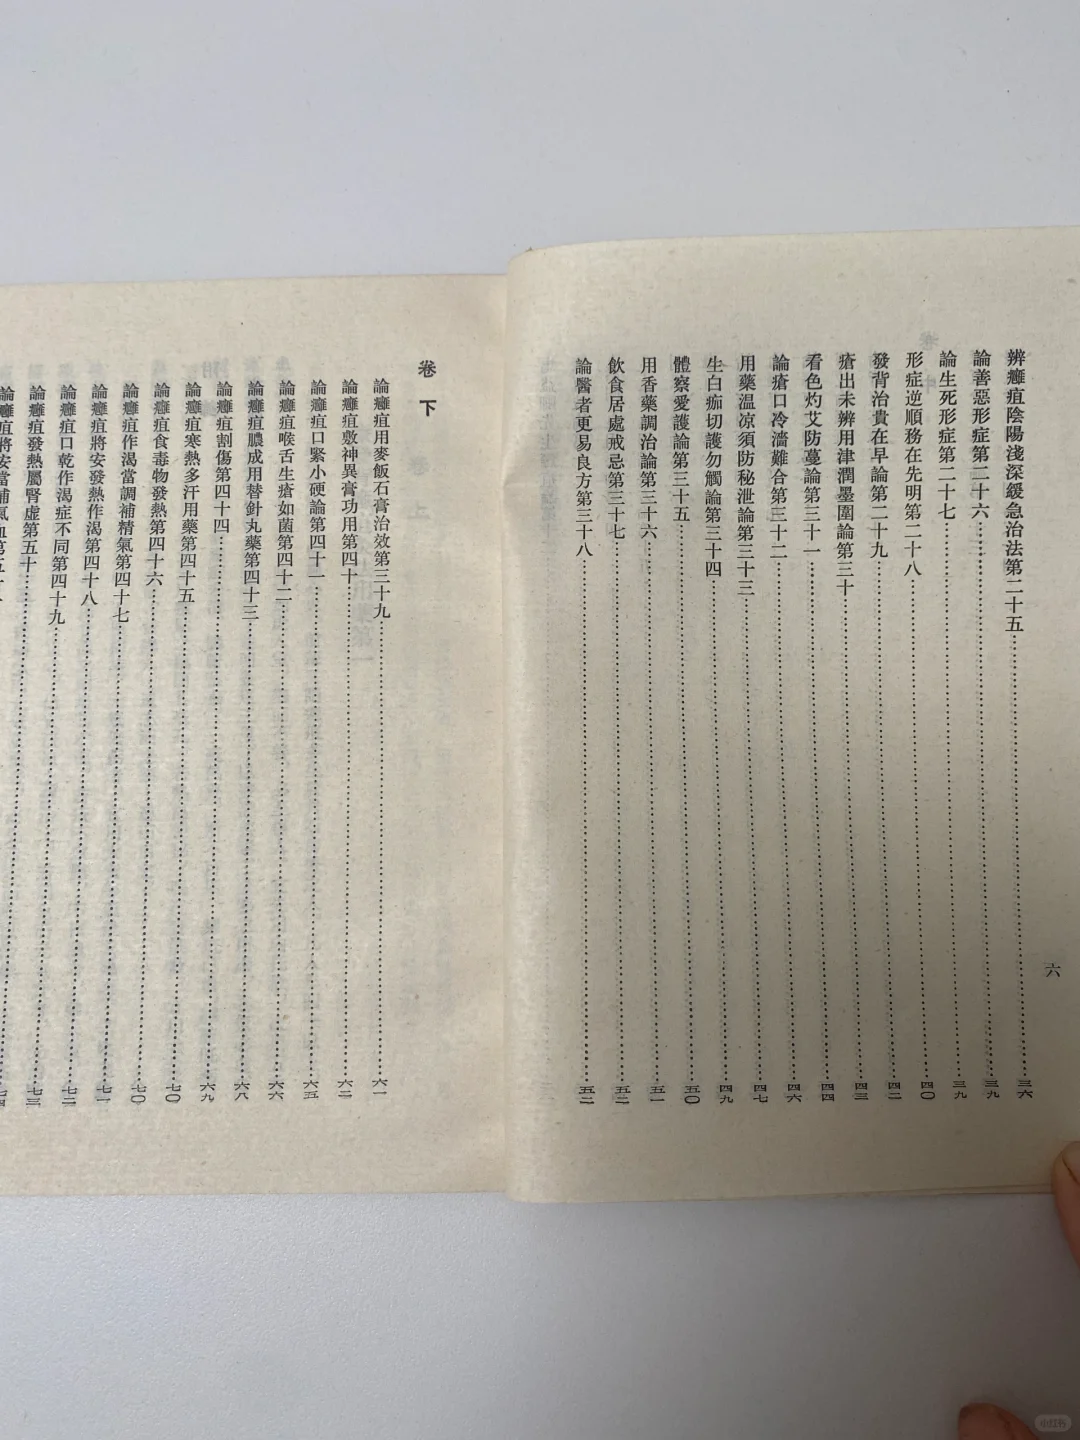 六
辨癰疽陰陽淺深緩急治法第二十五……三六
論善惡形症第二十六……三九
論生死形症第二十七……三九
形症逆順務在先明第二十八……四〇
發背治貴在早論第二十九……四二
瘡出未辨用津潤墨圍論第三十……四三
看色灼艾防蔓論第三十一……四四
論瘡口冷濇難合第三十二……四六
用藥溫涼須防秘泄論第三十三……四七
生白痂切護勿觸論第三十四……四九
體察愛護論第三十五……五〇
用香藥調治論第三十六……五一
飲食居處戒忌第三十七……五二
論醫者更易良方第三十八……五二
卷下
論癰疽用麥飯石膏治效第三十九……六一
論癰疽敷神異膏功用第四十……六二
論癰疽口緊小硬論第四十一……六五
論癰疽喉舌生瘡如菌第四十二……六六
論癰疽膿成用替針丸藥第四十三……六八
論癰疽割傷第四十四……六九
論癰疽寒熱多汗用藥第四十五……七〇
論癰疽食毒物發熱第四十六……七〇
論癰疽作渴當調補精氣第四十七……七一
論癰疽將安發熱作渴第四十八……七二
論癰疽口乾作渴症不同第四十九……七三
論癰疽發熱屬腎虛第五十……
論癰疽將安當補氣血第五十
小红书